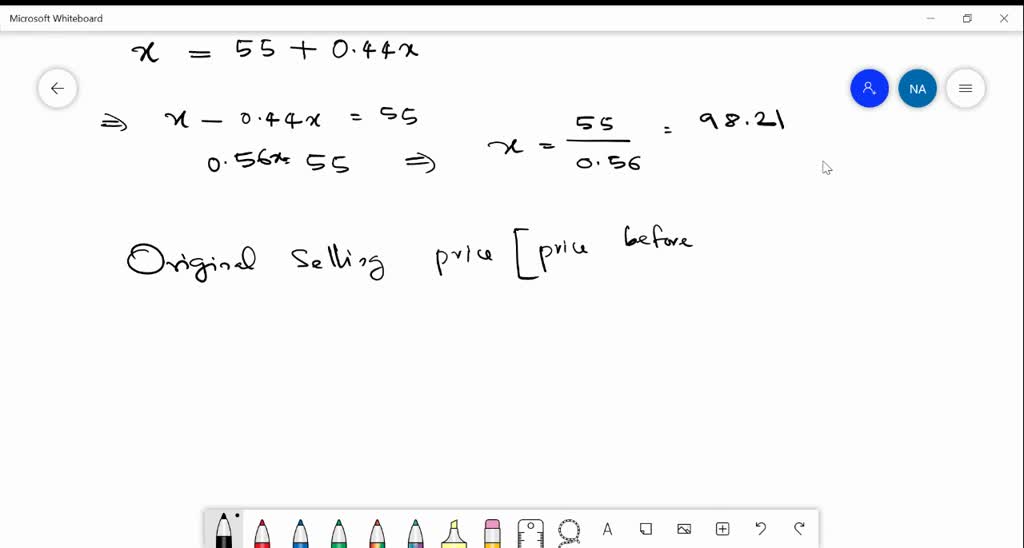 Microsoft Whiteboard
x = 55 + 0.44x
NA
⇒ x - 0.44x = 55
0.56x = 55 ⇒ x = 55/0.56 = 98.21
Original Selling price [price before
A